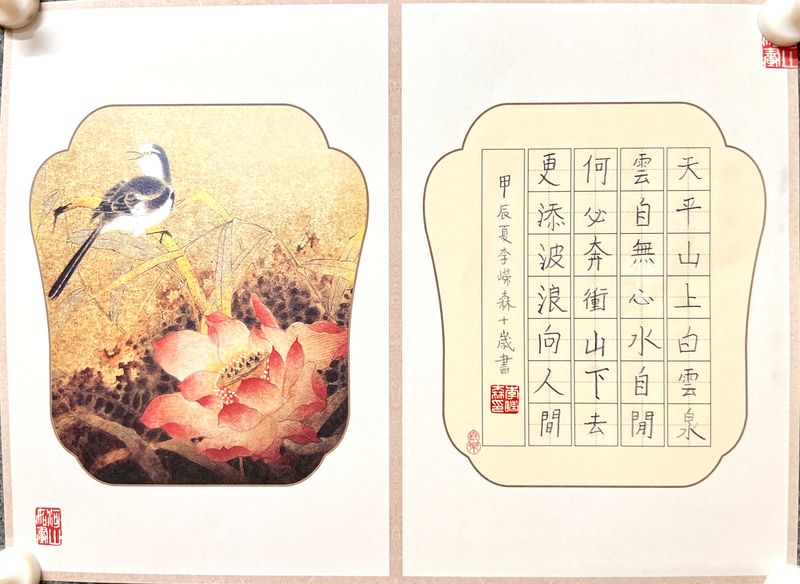 天平山上白雲泉
雲自無心水自閒
何必奔衝山下去
更添波浪向人間
甲辰夏李嶸森十歲書